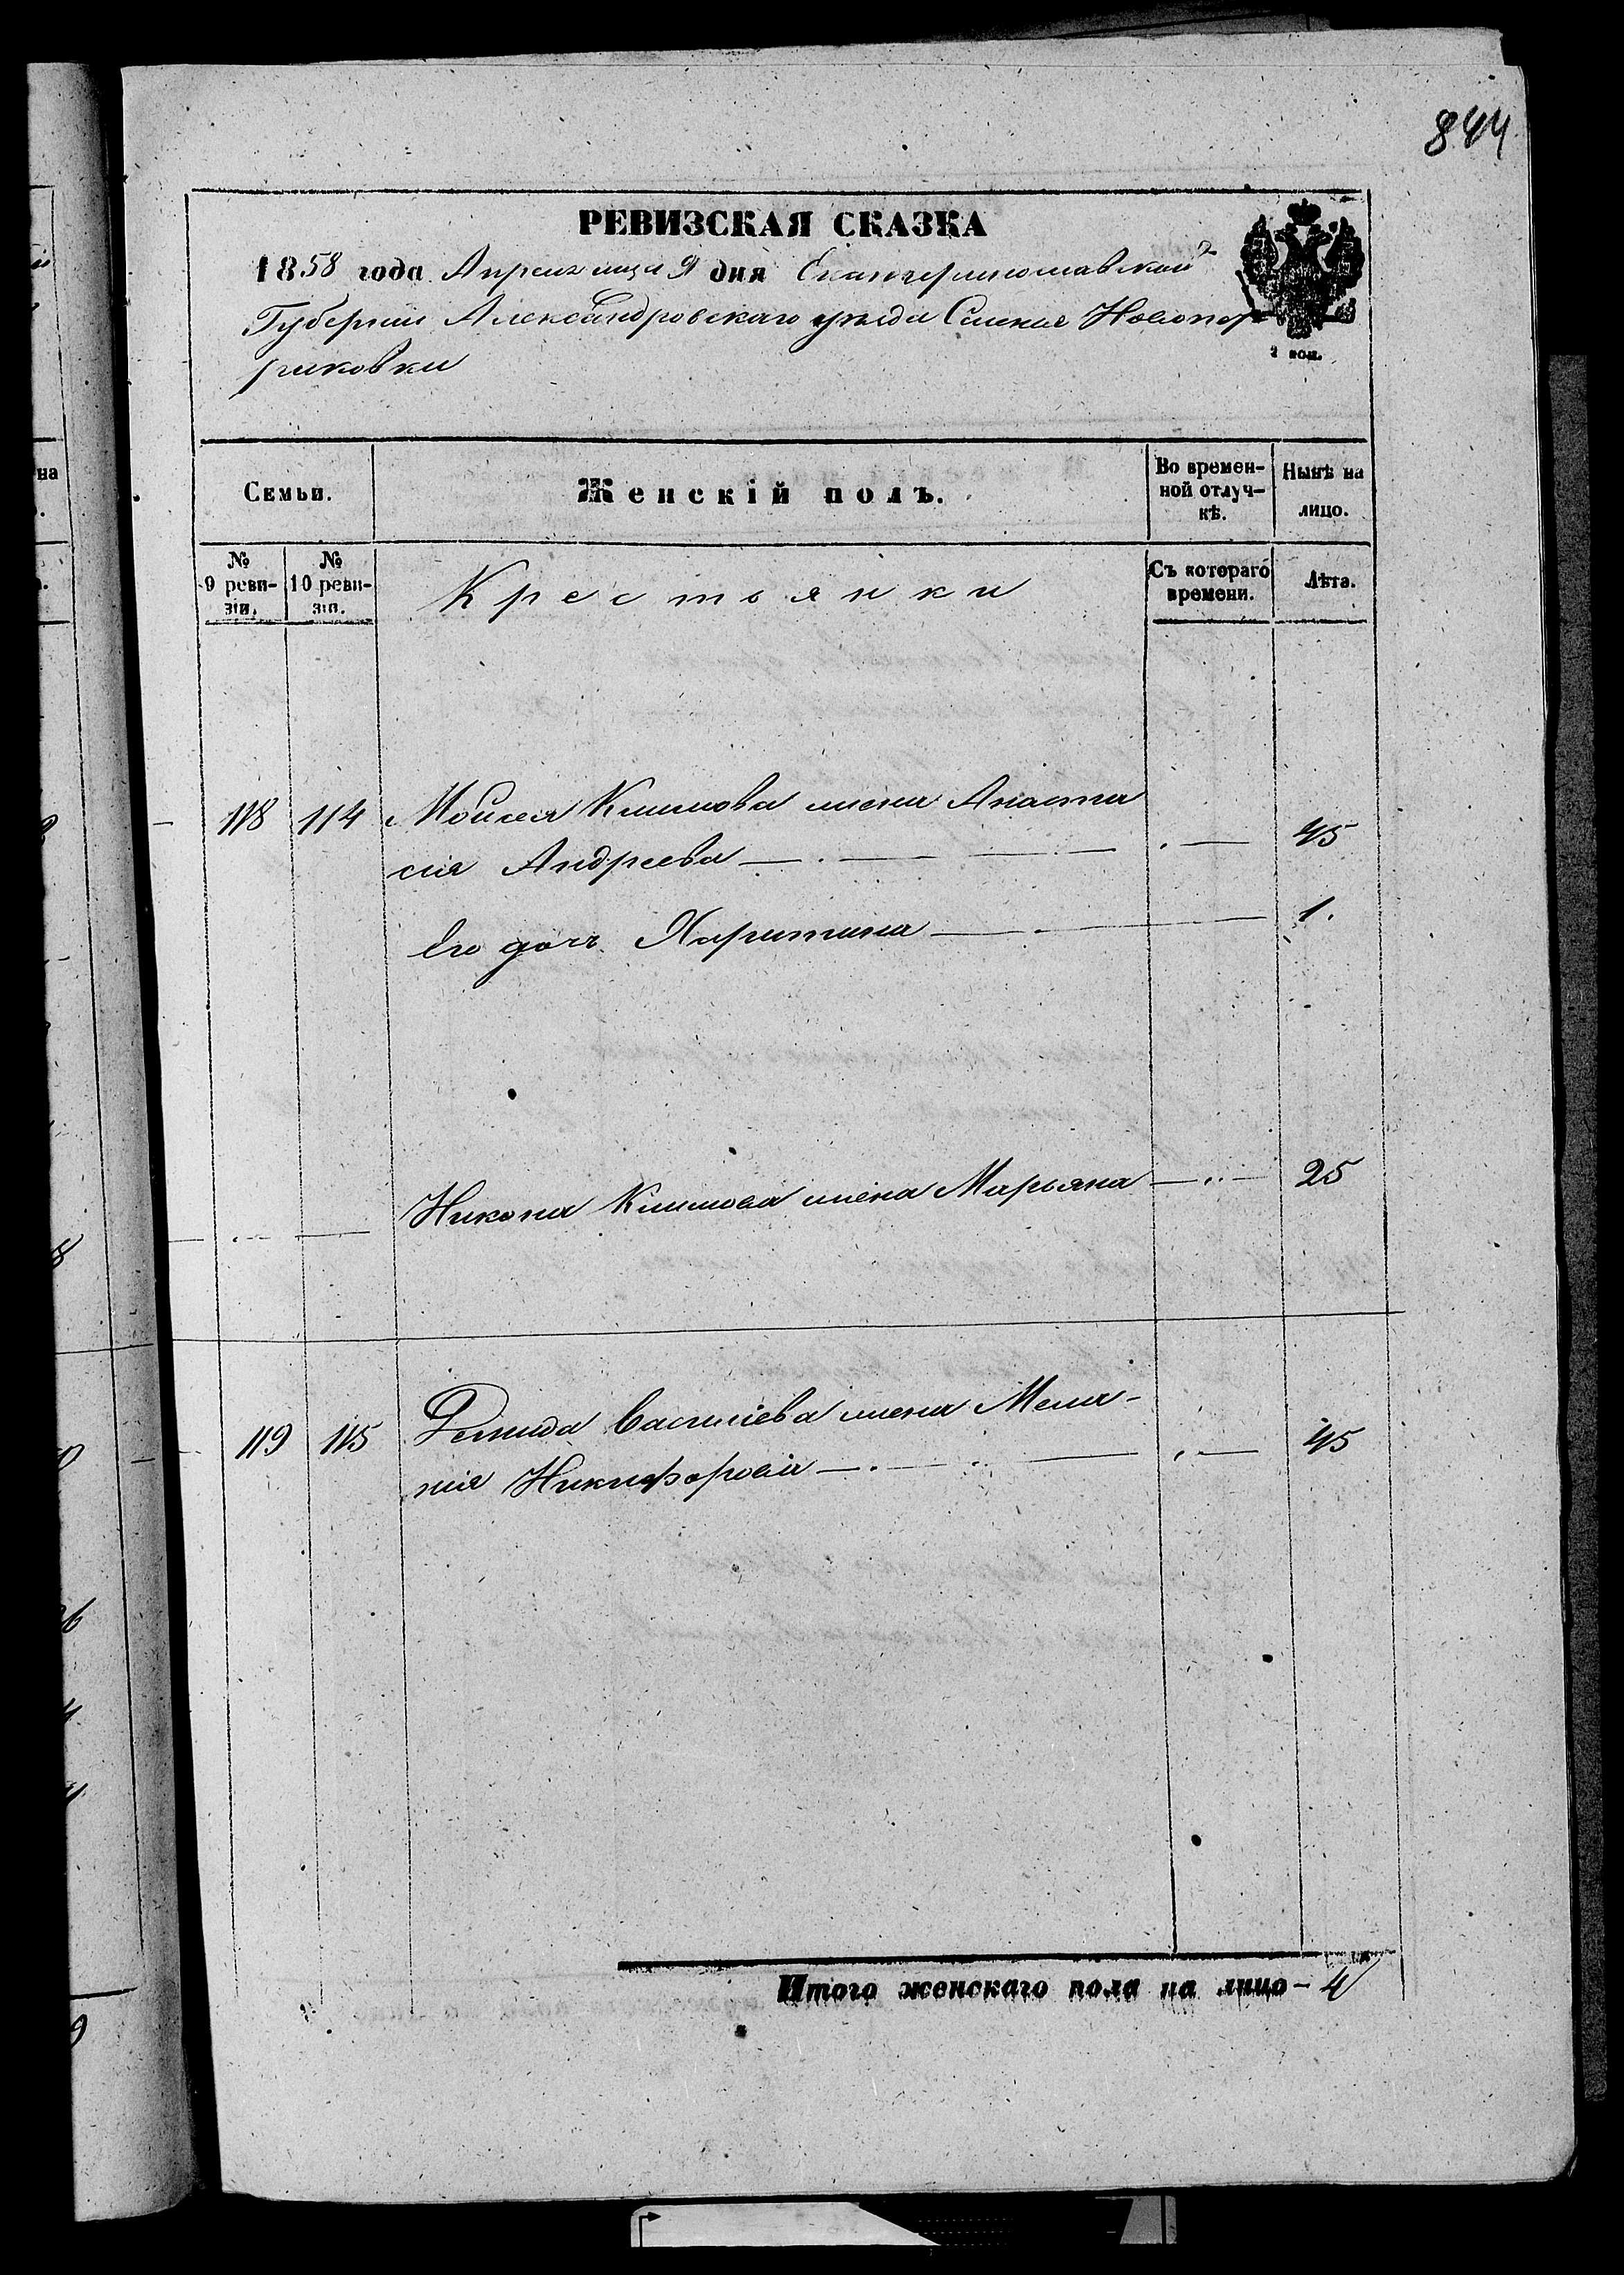 844
РЕВИЗСКАЯ СКАЗКА
1858 года Апреля мца 9 дня Екатеринославской
Губернии Александровскаго уезда Селенiе Новопет
риковки
2 коп.
Семьи.
Женскій полъ.
Во времен-
ной отлуч-
кѣ.
Нынѣ на
лицо.
№
9 реви-
зіи.
№
10 реви-
зіи.
Крестьянки
Съ котораго
времени.
Лѣта.
118 114 Мойсея Климова жена Анаста
сия Андреева 45
Его дочь Харитина 1.
Никона Климова жена Марьяна 25
119 115 Демида Василіева жена Мела-
нія Никифорова 45
Итого женскаго пола на лицо - 4